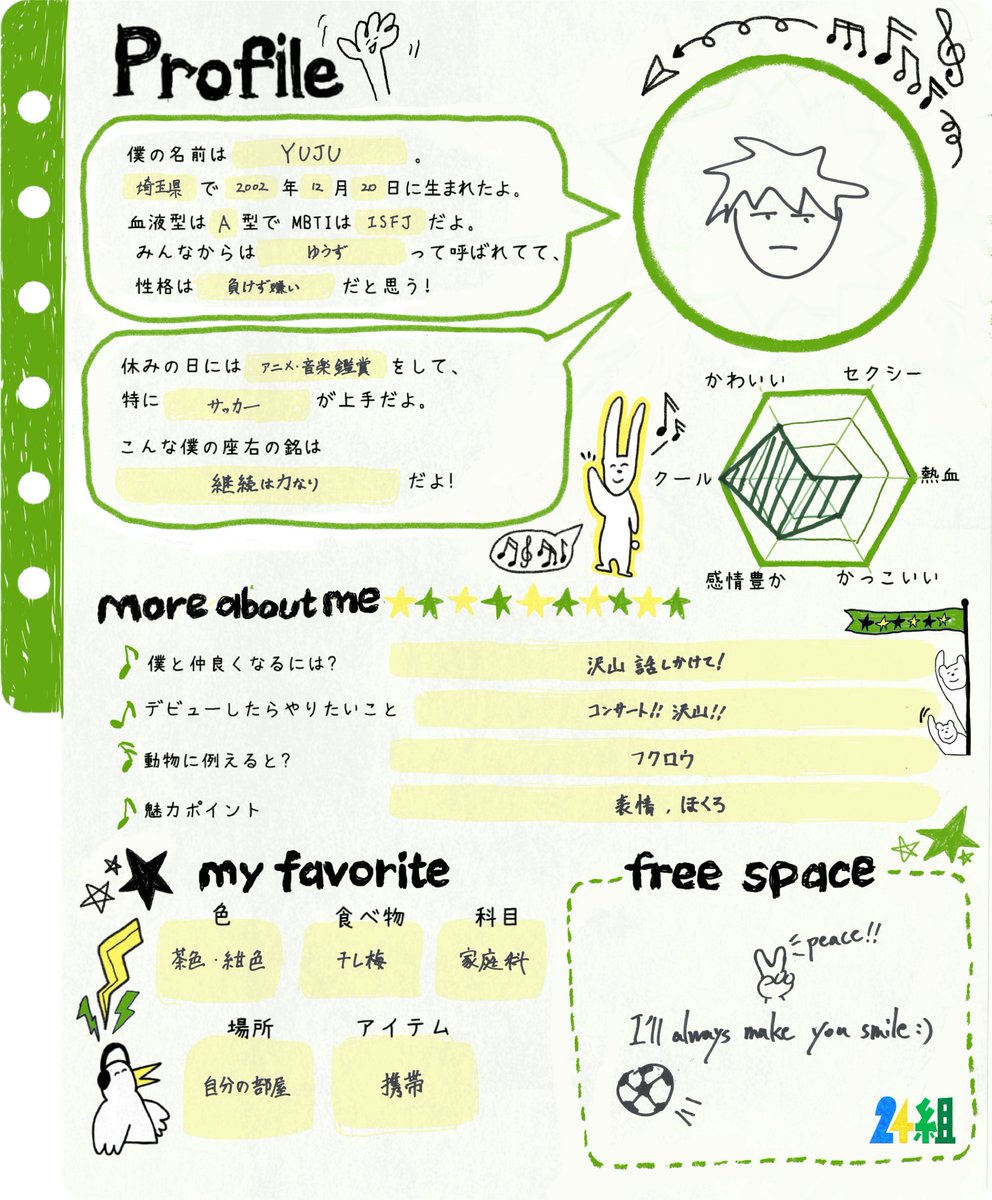 Profile
僕の名前は YUJU 。
埼玉県 で 2002 年 12 月 20 日に生まれたよ。
血液型は A 型で MBTIは ISFJ だよ。
みんなからは ゆうず って呼ばれてて、
性格は 負けず嫌い だと思う!
休みの日には アニメ・音楽鑑賞 をして、
特に サッカー が上手だよ。
こんな僕の座右の銘は
継続は力なり だよ!
かわいい
セクシー
クール
熱血
感情豊か
かっこいい
more about me
僕と仲良くなるには? 沢山 話しかけて!
デビューしたらやりたいこと コンサート!! 沢山!!
動物に例えると? フクロウ
魅力ポイント 表情, ほくろ
my favorite
色 食べ物 科目
茶色・紺色 干し梅 家庭科
場所 アイテム
自分の部屋 携帯
free space
peace!!
I'll always make you smile:)
24組